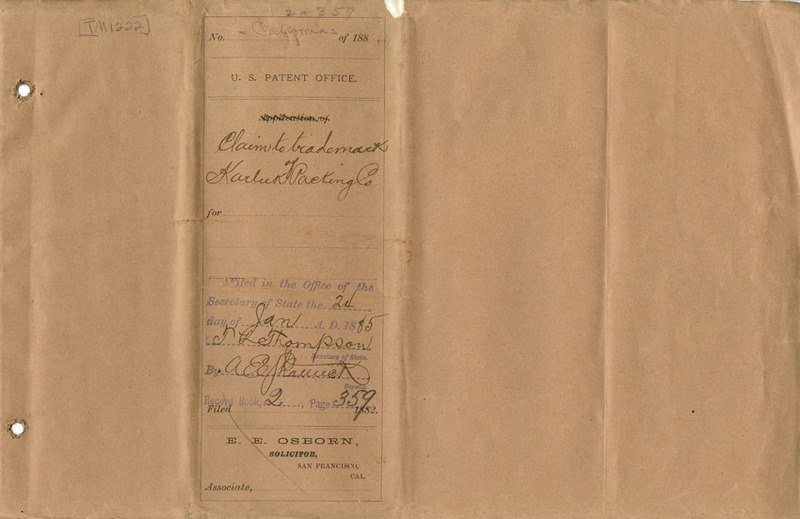 2 * 359
[TM1222]
No. of 188
U. S. PATENT OFFICE.
Application of
Claim to trademark
of
Karluk Packing Co
for
Filed in the Office of the
Secretary of State the 24
day of Jan A. D. 1885
T L Thompson
Secretary of State.
By A E Shattuck
Deputy.
Record Book, 2, Page 359
Filed 1882.
E. E. OSBORN,
SOLICITOR,
SAN FRANCISCO,
CAL.
Associate,